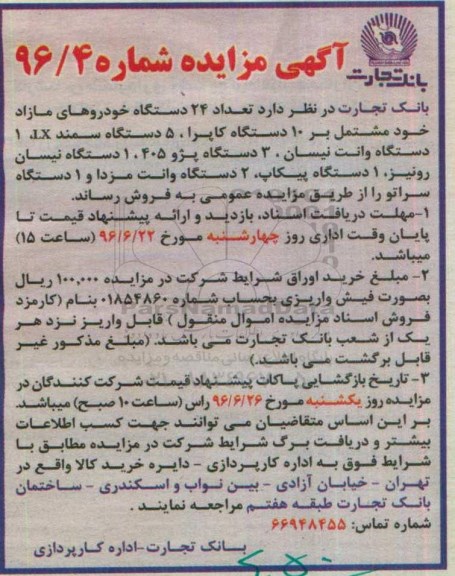 آگهی مزایده شماره ۹۶/۴
بانک تجارت
بانک تجارت در نظر دارد تعداد ۲۴ دستگاه خودروهای مازاد
خود مشتمل بر ۱۰ دستگاه کاپرا ، ۵ دستگاه سمند LX، ۱
دستگاه وانت نیسان ، ۳ دستگاه پژو ۴۰۵ ، ۱ دستگاه نیسان
رونیز، ۱ دستگاه پیکاپ، ۲ دستگاه وانت مزدا و ۱ دستگاه
سراتو را از طریق مزایده عمومی به فروش رساند.
۱-مهلت دریافت اسناد، بازدید و ارائه پیشنهاد قیمت تا
پایان وقت اداری روز چهارشنبه مورخ ۹۶/۶/۲۲ (ساعت ۱۵)
میباشد.
۲- مبلغ خرید اوراق شرایط شرکت در مزایده ۱۰۰,۰۰۰ ریال
بصورت فیش واریزی بحساب شماره ۰۱۸۵۴۸۶۰ بنام (کارمزد
فروش اسناد مزایده اموال منقول ) قابل واریز نزد هر
یک از شعب بانک تجارت می باشد. (مبلغ مذکور غیر
قابل برگشت می باشد.)
۳- تاریخ بازگشایی پاکات پیشنهاد قیمت شرکت کنندگان در
مزایده روز یکشنبه مورخ ۹۶/۶/۲۶ راس (ساعت ۱۰ صبح) میباشد.
بر این اساس متقاضیان می توانند جهت کسب اطلاعات
بیشتر و دریافت برگ شرایط شرکت در مزایده مطابق با
شرایط فوق به اداره کارپردازی - دایره خرید کالا واقع در
تهران - خیابان آزادی - بین نواب و اسکندری - ساختمان
بانک تجارت طبقه هفتم مراجعه نمایند .
شماره تماس: ۶۶۹۴۸۴۵۵
بانک تجارت-اداره کارپردازی